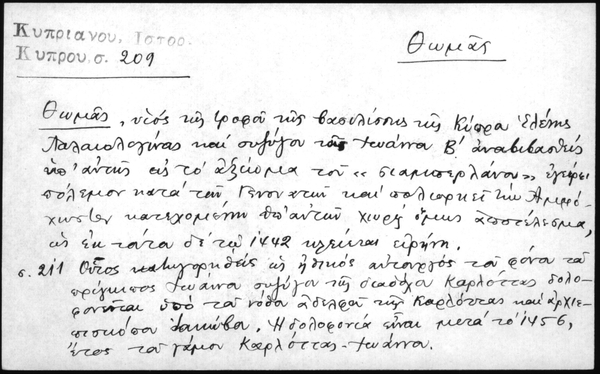 Κυπριανου, Ιστορ.
Κυπρου σ. 209
Θωμᾶς
Θωμᾶς, υἱός τῆς τροφοῦ τῆς βασιλίσσης τῆς Κύπρου Ἑλένης
Παλαιολογίνας καί συζύγου τοῦ Ἰωάννου Β΄ ἀναβιβασθείς
ὑπ' αὐτῆς εἰς τό ἀξίωμα τοῦ «σιαμπερλάνου» ἐγείρει
πόλεμον κατά τῶν Γενουατῶν καί πολιορκεῖ τήν Ἀμμό-
χωστον κατεχομένην ὑπ' αὐτῶν χωρίς ὅμως ἀποτέλεσμα,
ὡς ἐκ τούτου δέ τῷ 1442 κλείεται εἰρήνη.
σ. 211 Οὗτος κατηγορηθείς ὡς ἠθικός αὐτουργός τοῦ φόνου τοῦ
πρίγκιπος Ἰωάννου συζύγου τῆς διαδόχου Καρλόττας δολο-
φονεῖται ὑπό τοῦ νόθου ἀδελφοῦ τῆς Καρλόττας καί ἀρχιε-
πισκόπου Ἰακώβου. Ἡ δολοφονία εἶναι μετά τό 1456,
ἔτος τοῦ γάμου Καρλόττας-Ἰωάννου.